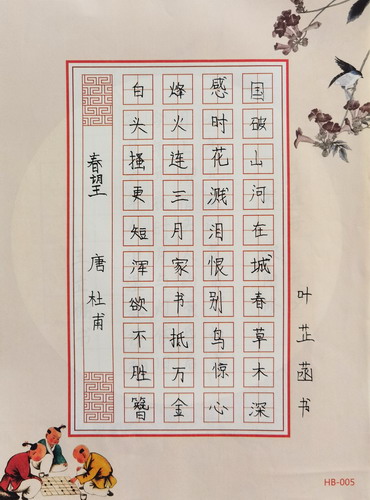 叶芷菡书
国破山河在城春草木深
感时花溅泪恨别鸟惊心
烽火连三月家书抵万金
白头搔更短浑欲不胜簪
春望 唐 杜甫
HB-005